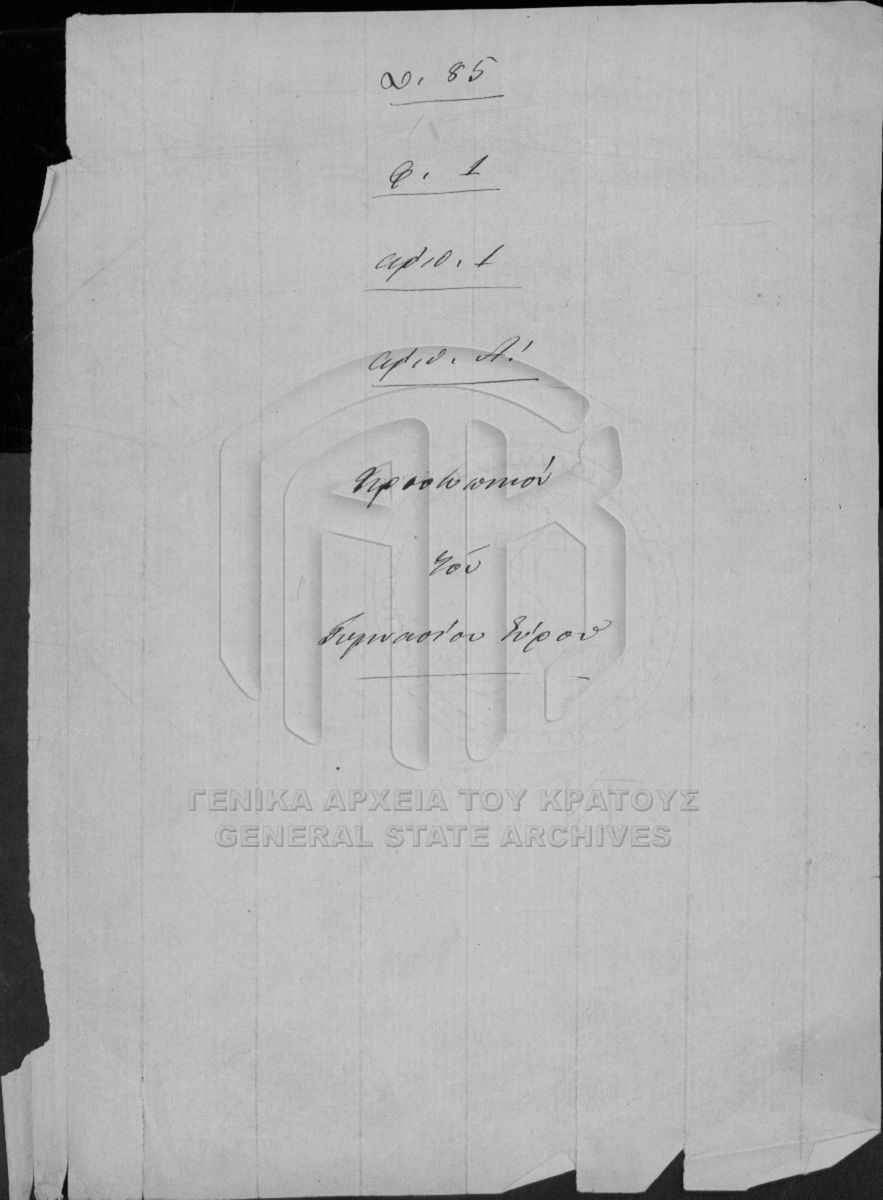 Δ. 85
Φ. 1
αριθ. 1
αριθ. Α!
Προσωπικόν
τού
Γυμνασίου Σύρου
ΓΕΝΙΚΑ ΑΡΧΕΙΑ ΤΟΥ ΚΡΑΤΟΥΣ
GENERAL STATE ARCHIVES